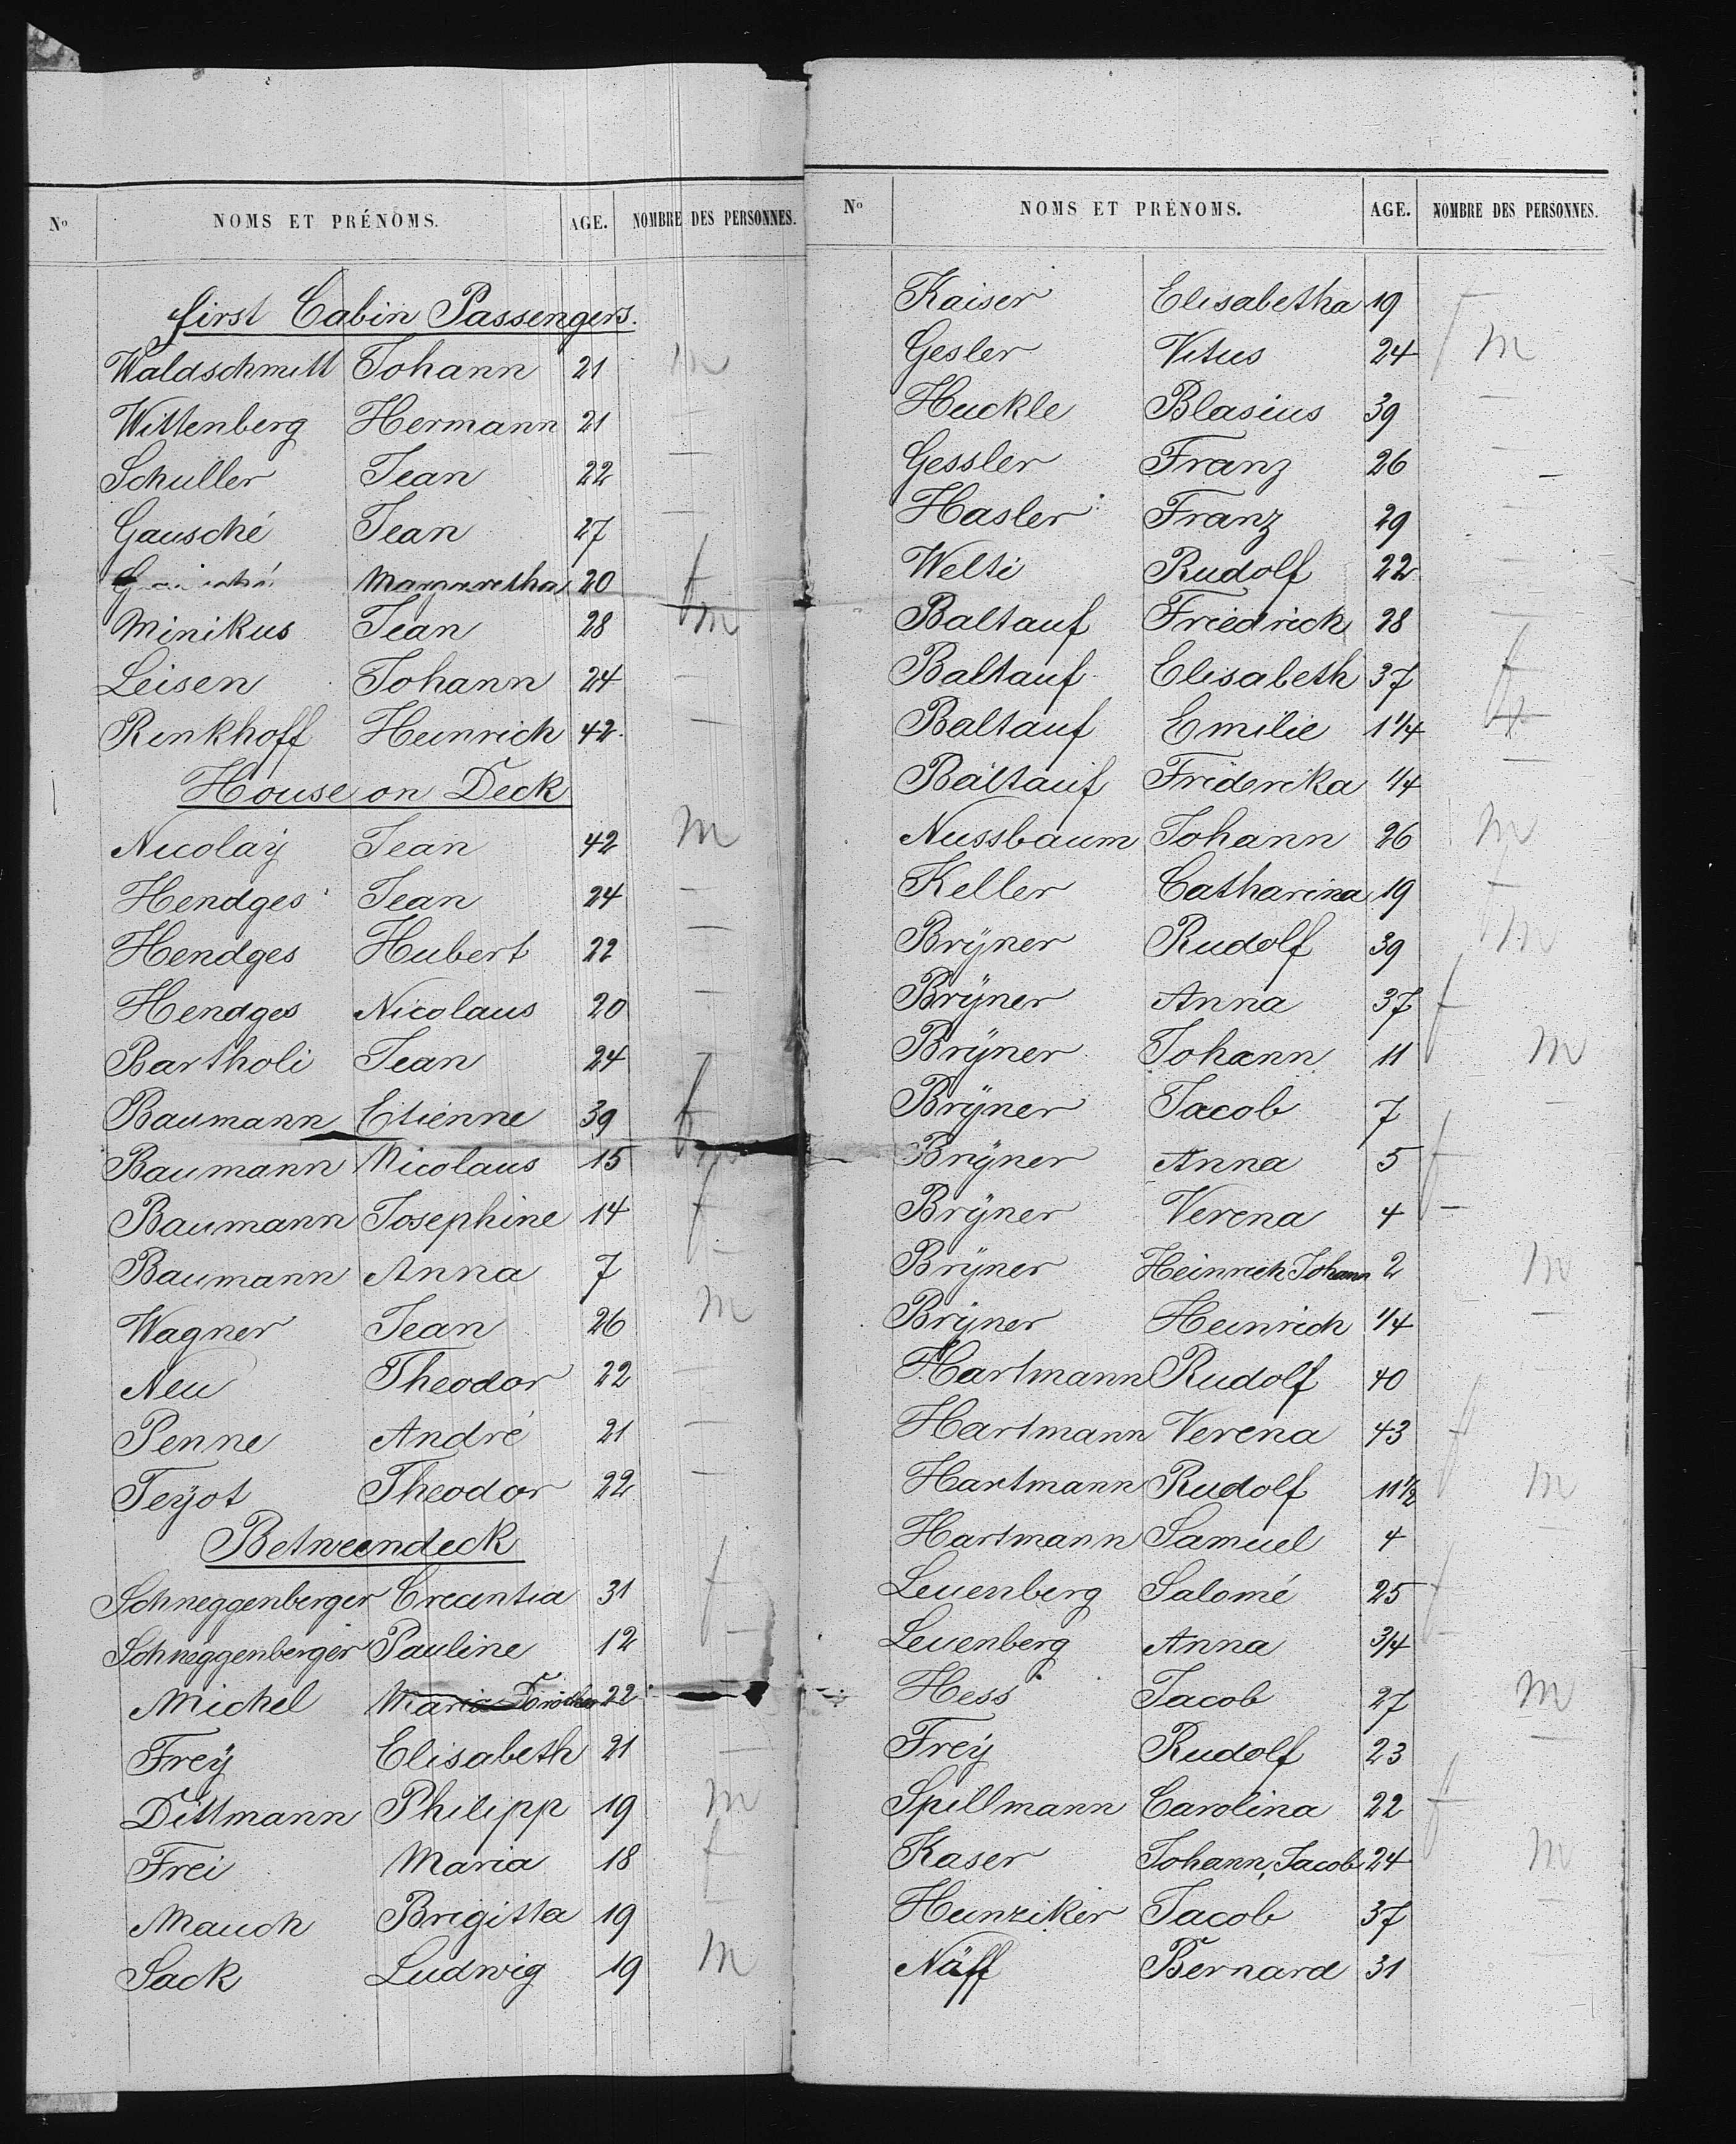 No NOMS ET PRÉNOMS. AGE. NOMBRE DES PERSONNES.
first Cabin Passengers.
Waldschmitt Johann 21 m
Wittenberg Hermann 21 —
Schuller Jean 22 —
Gausché Jean 27 —
Margaretha 20 f
Minikus Jean 28 m
Leisen Johann 24 —
Rinkhoff Heinrich 42 —
House on Deck
Nicolaÿ Jean 42 m
Hendges Jean 24 —
Hendges Hubert 22 —
Hendges Nicolaus 20 —
Bartholi Jean 24 —
Baumann Etienne 39 f
Baumann Nicolaus 15
Baumann Josephine 14 f
Baumann Anna 7 —
Wagner Jean 26 m
Neu Theodor 22 —
Penne André 21 —
Teÿot Theodor 22 —
Betweendeck
Schneggenberger Crecentia 31 f
Schneggenberger Pauline 12 —
Michel Maria Dorothea 22
Freÿ Elisabeth 21 —
Dittmann Philipp 19 m
Frei Maria 18 f
Mauch Brigitta 19 —
Sack Ludwig 19 m
No NOMS ET PRÉNOMS. AGE. NOMBRE DES PERSONNES.
Kaiser Elisabetha 19 f
Gesler Vitus 24 m
Huckle Blasius 39 —
Gessler Franz 26 —
Hasler Franz 29 —
Welti Rudolf 22 —
Baltauf Friedrich 28 —
Baltauf Elisabeth 37 f
Baltauf Emilie 1 1/4
Baltauf Friderika 1/4 —
Nussbaum Johann 26 m
Keller Catharina 19 f
Brÿner Rudolf 39 m
Brÿner Anna 37 f
Brÿner Johann 11 m
Brÿner Jacob 7 —
Brÿner Anna 5 f
Brÿner Verena 4 —
Brÿner Heinrich Johann 2 m
Brÿner Heinrich 1/4 —
Hartmann Rudolf 40 —
Hartmann Verena 43 f
Hartmann Rudolf 11 1/2 m
Hartmann Samuel 4 —
Leuenberg Salomé 25 f
Leuenberg Anna 3/4 —
Hess Jacob 27 m
Freÿ Rudolf 23 —
Spillmann Carolina 22 f
Kaser Johann, Jacob 24 m
Hunziker Jacob 37 —
Näff Bernard 31 —